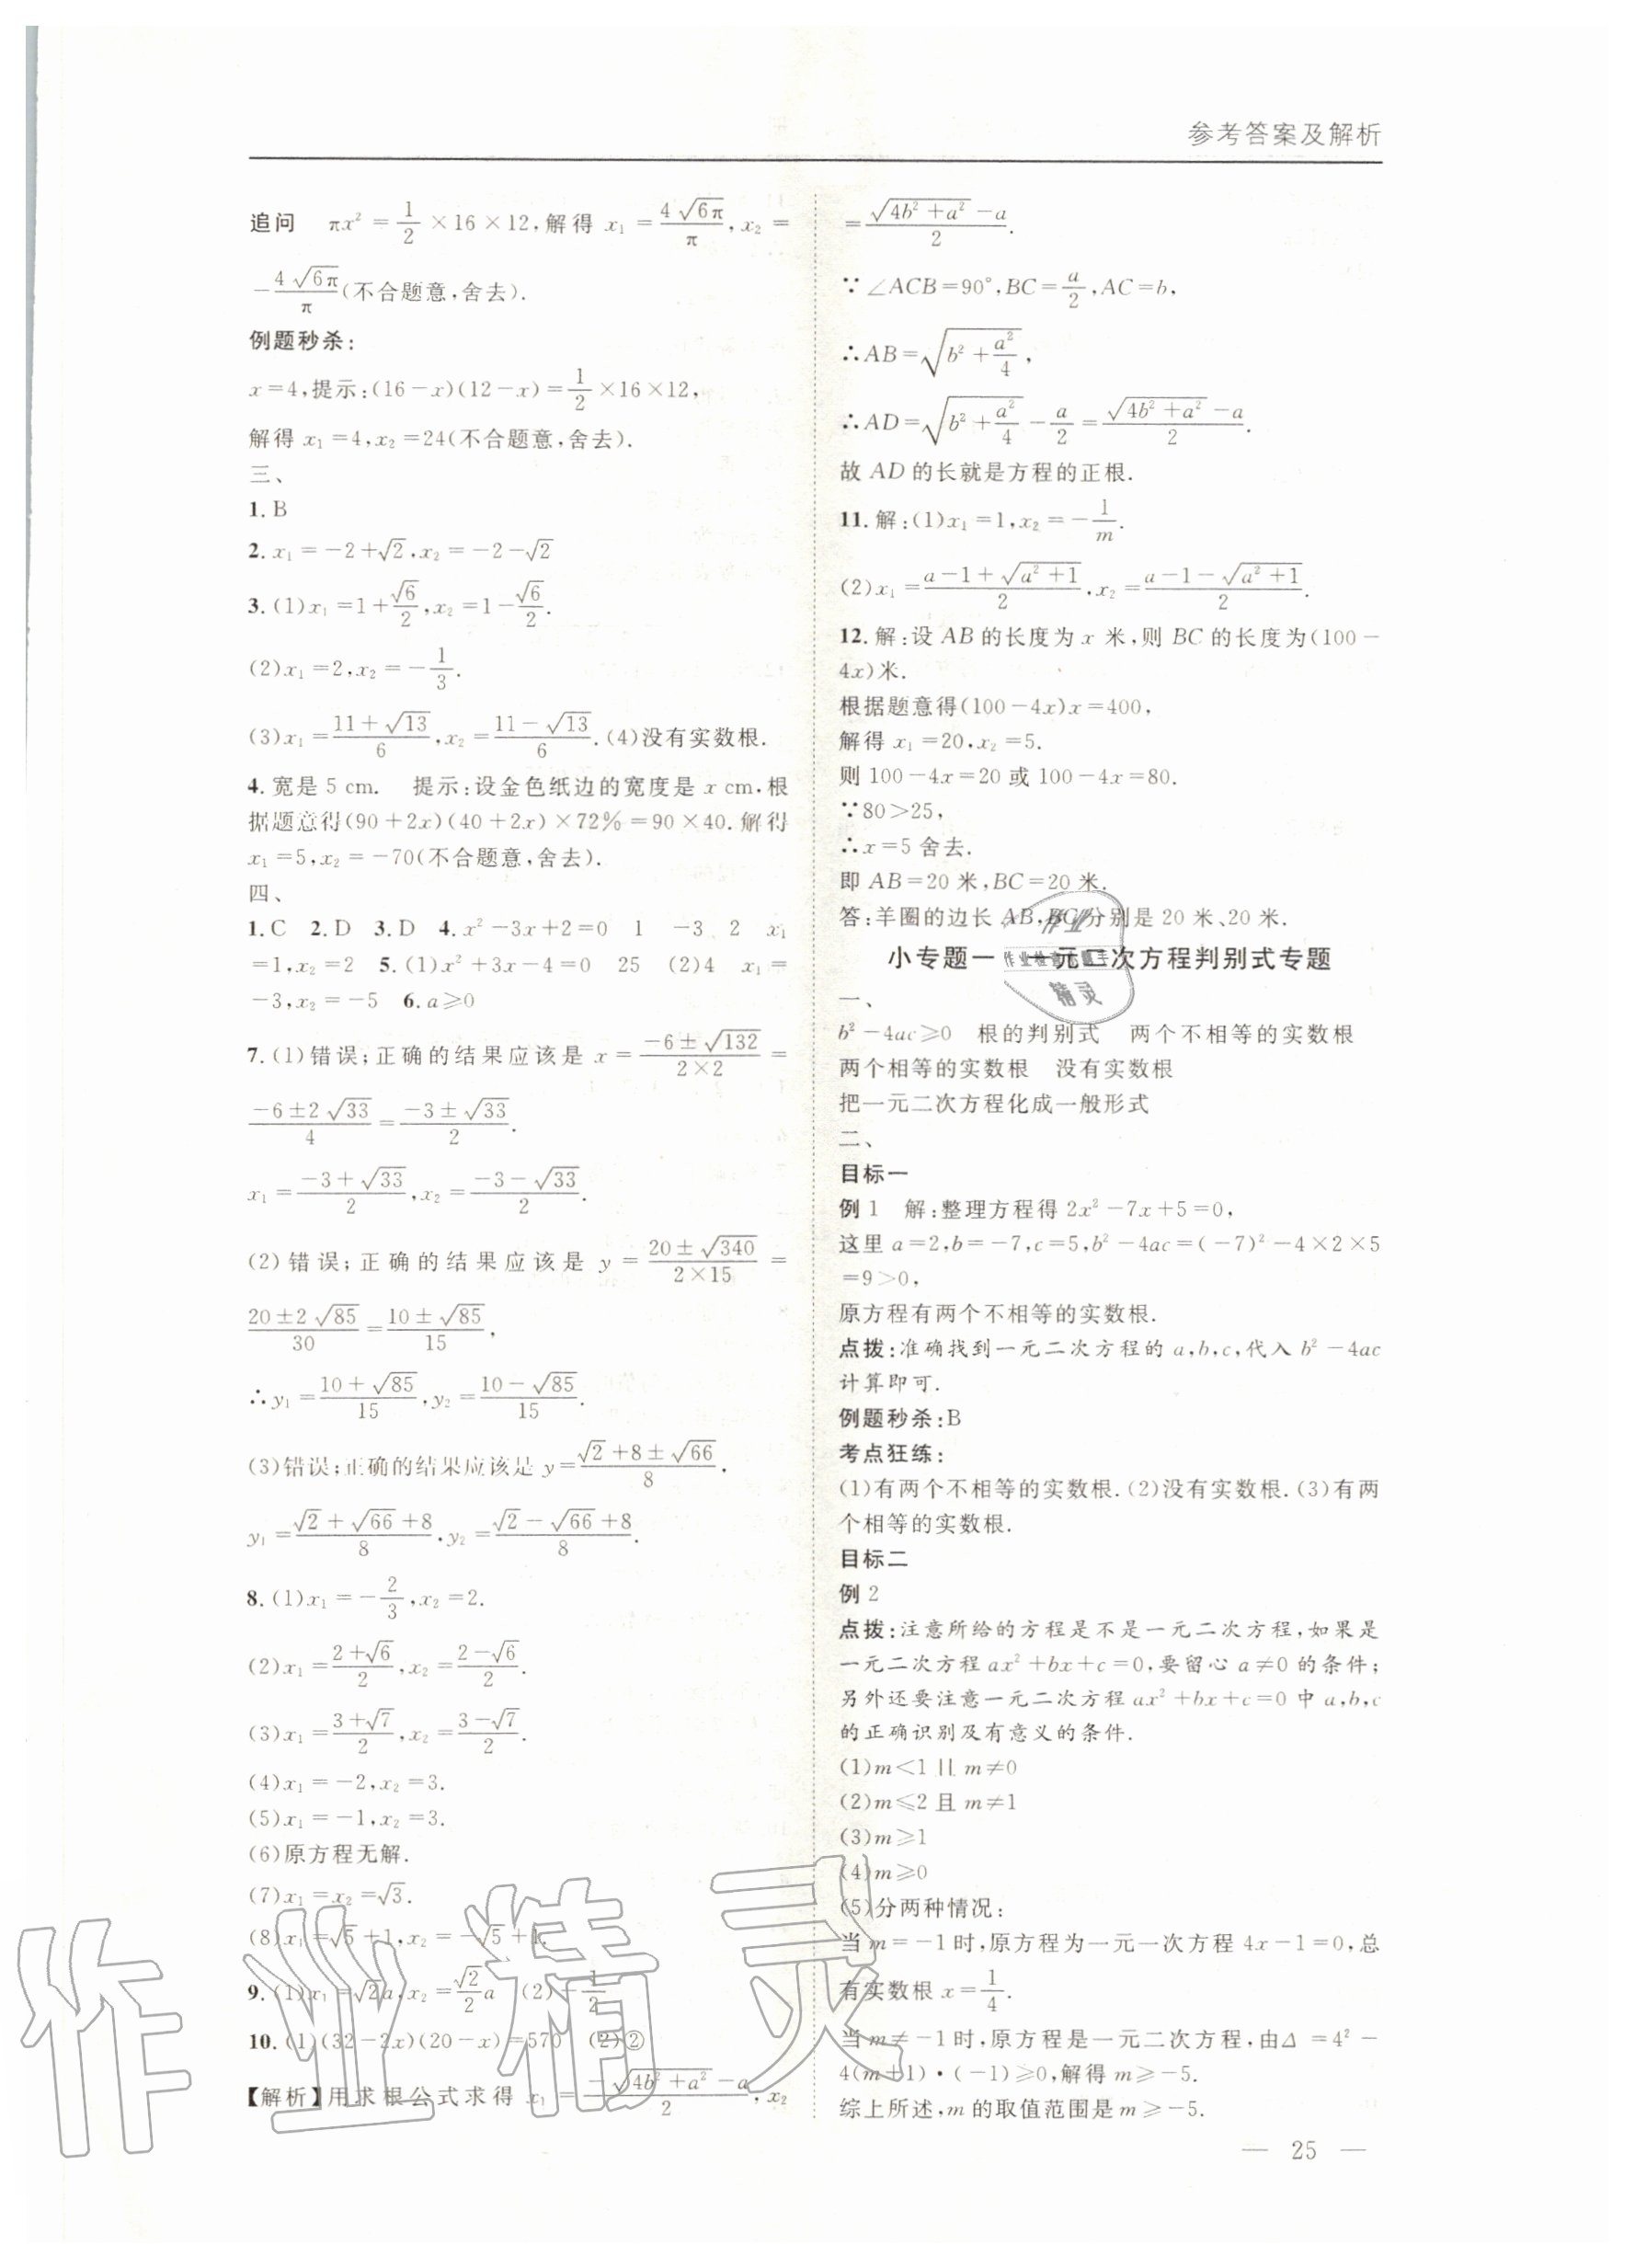 参考答案及解析
追问 πx²=1/2×16×12,解得 x₁=4√(6π)/π,x₂=
-4√(6π)/π(不合题意,舍去).
例题秒杀:
x=4,提示:(16-x)(12-x)=1/2×16×12,
解得 x₁=4,x₂=24(不合题意,舍去).
三、
1.B
2.x₁=-2+√2,x₂=-2-√2
3.(1)x₁=1+√6/2,x₂=1-√6/2.
(2)x₁=2,x₂=-1/3.
(3)x₁=(11+√13)/6,x₂=(11-√13)/6.(4)没有实数根.
4.宽是 5 cm. 提示:设金色纸边的宽度是 x cm,根
据题意得(90+2x)(40+2x)×72%=90×40.解得
x₁=5,x₂=-70(不合题意,舍去).
四、
1.C 2.D 3.D 4.x²-3x+2=0 1 -3 2 x₁
=1,x₂=2 5.(1)x²+3x-4=0 25 (2)4 x₁=
-3,x₂=-5 6.a≥0
7.(1)错误;正确的结果应该是 x=(-6±√132)/(2×2)=
(-6±2√33)/4=(-3±√33)/2.
x₁=(-3+√33)/2,x₂=(-3-√33)/2.
(2)错误;正确的结果应该是 y=(20±√340)/(2×15)=
(20±2√85)/30=(10±√85)/15,
∴y₁=(10+√85)/15,y₂=(10-√85)/15.
(3)错误;正确的结果应该是 y=(√2+8±√66)/8,
y₁=(√2+√66+8)/8,y₂=(√2-√66+8)/8.
8.(1)x₁=-2/3,x₂=2.
(2)x₁=(2+√6)/2,x₂=(2-√6)/2.
(3)x₁=(3+√7)/2,x₂=(3-√7)/2.
(4)x₁=-2,x₂=3.
(5)x₁=-1,x₂=3.
(6)原方程无解.
(7)x₁=x₂=√3.
(8)x₁=√5+1,x₂=-√5+1.
9.(1)x₁=√2a,x₂=√2/2a (2)-1/2
10.(1)(32-2x)(20-x)=570 (2)②
【解析】用求根公式求得 x₁=(-√(4b²+a²)-a)/2,x₂
=(√(4b²+a²)-a)/2.
∵∠ACB=90°,BC=a/2,AC=b,
∴AB=√(b²+a²/4),
∴AD=√(b²+a²/4)-a/2=(√(4b²+a²)-a)/2.
故 AD 的长就是方程的正根.
11.解:(1)x₁=1,x₂=-1/m.
(2)x₁=(a-1+√(a²+1))/2,x₂=(a-1-√(a²+1))/2.
12.解:设 AB 的长度为 x 米,则 BC 的长度为(100-
4x)米.
根据题意得(100-4x)x=400,
解得 x₁=20,x₂=5.
则 100-4x=20 或 100-4x=80.
∵80>25,
∴x=5 舍去.
即 AB=20 米,BC=20 米.
答:羊圈的边长 AB,BC 分别是 20 米、20 米.
小专题一 一元二次方程判别式专题
一、
b²-4ac≥0 根的判别式 两个不相等的实数根
两个相等的实数根 没有实数根
把一元二次方程化成一般形式
二、
目标一
例 1 解:整理方程得 2x²-7x+5=0,
这里 a=2,b=-7,c=5,b²-4ac=(-7)²-4×2×5
=9>0,
原方程有两个不相等的实数根.
点拨:准确找到一元二次方程的 a,b,c,代入 b²-4ac
计算即可.
例题秒杀:B
考点狂练:
(1)有两个不相等的实数根.(2)没有实数根.(3)有两
个相等的实数根.
目标二
例 2
点拨:注意所给的方程是不是一元二次方程,如果是
一元二次方程 ax²+bx+c=0,要留心 a≠0 的条件;
另外还要注意一元二次方程 ax²+bx+c=0 中 a,b,c
的正确识别及有意义的条件.
(1)m<1 且 m≠0
(2)m≤2 且 m≠1
(3)m≥1
(4)m≥0
(5)分两种情况:
当 m=-1 时,原方程为一元一次方程 4x-1=0,总
有实数根 x=1/4.
当 m≠-1 时,原方程是一元二次方程,由Δ=4²-
4(m+1)·(-1)≥0,解得 m≥-5.
综上所述,m 的取值范围是 m≥-5.
— 25 —
作业精灵